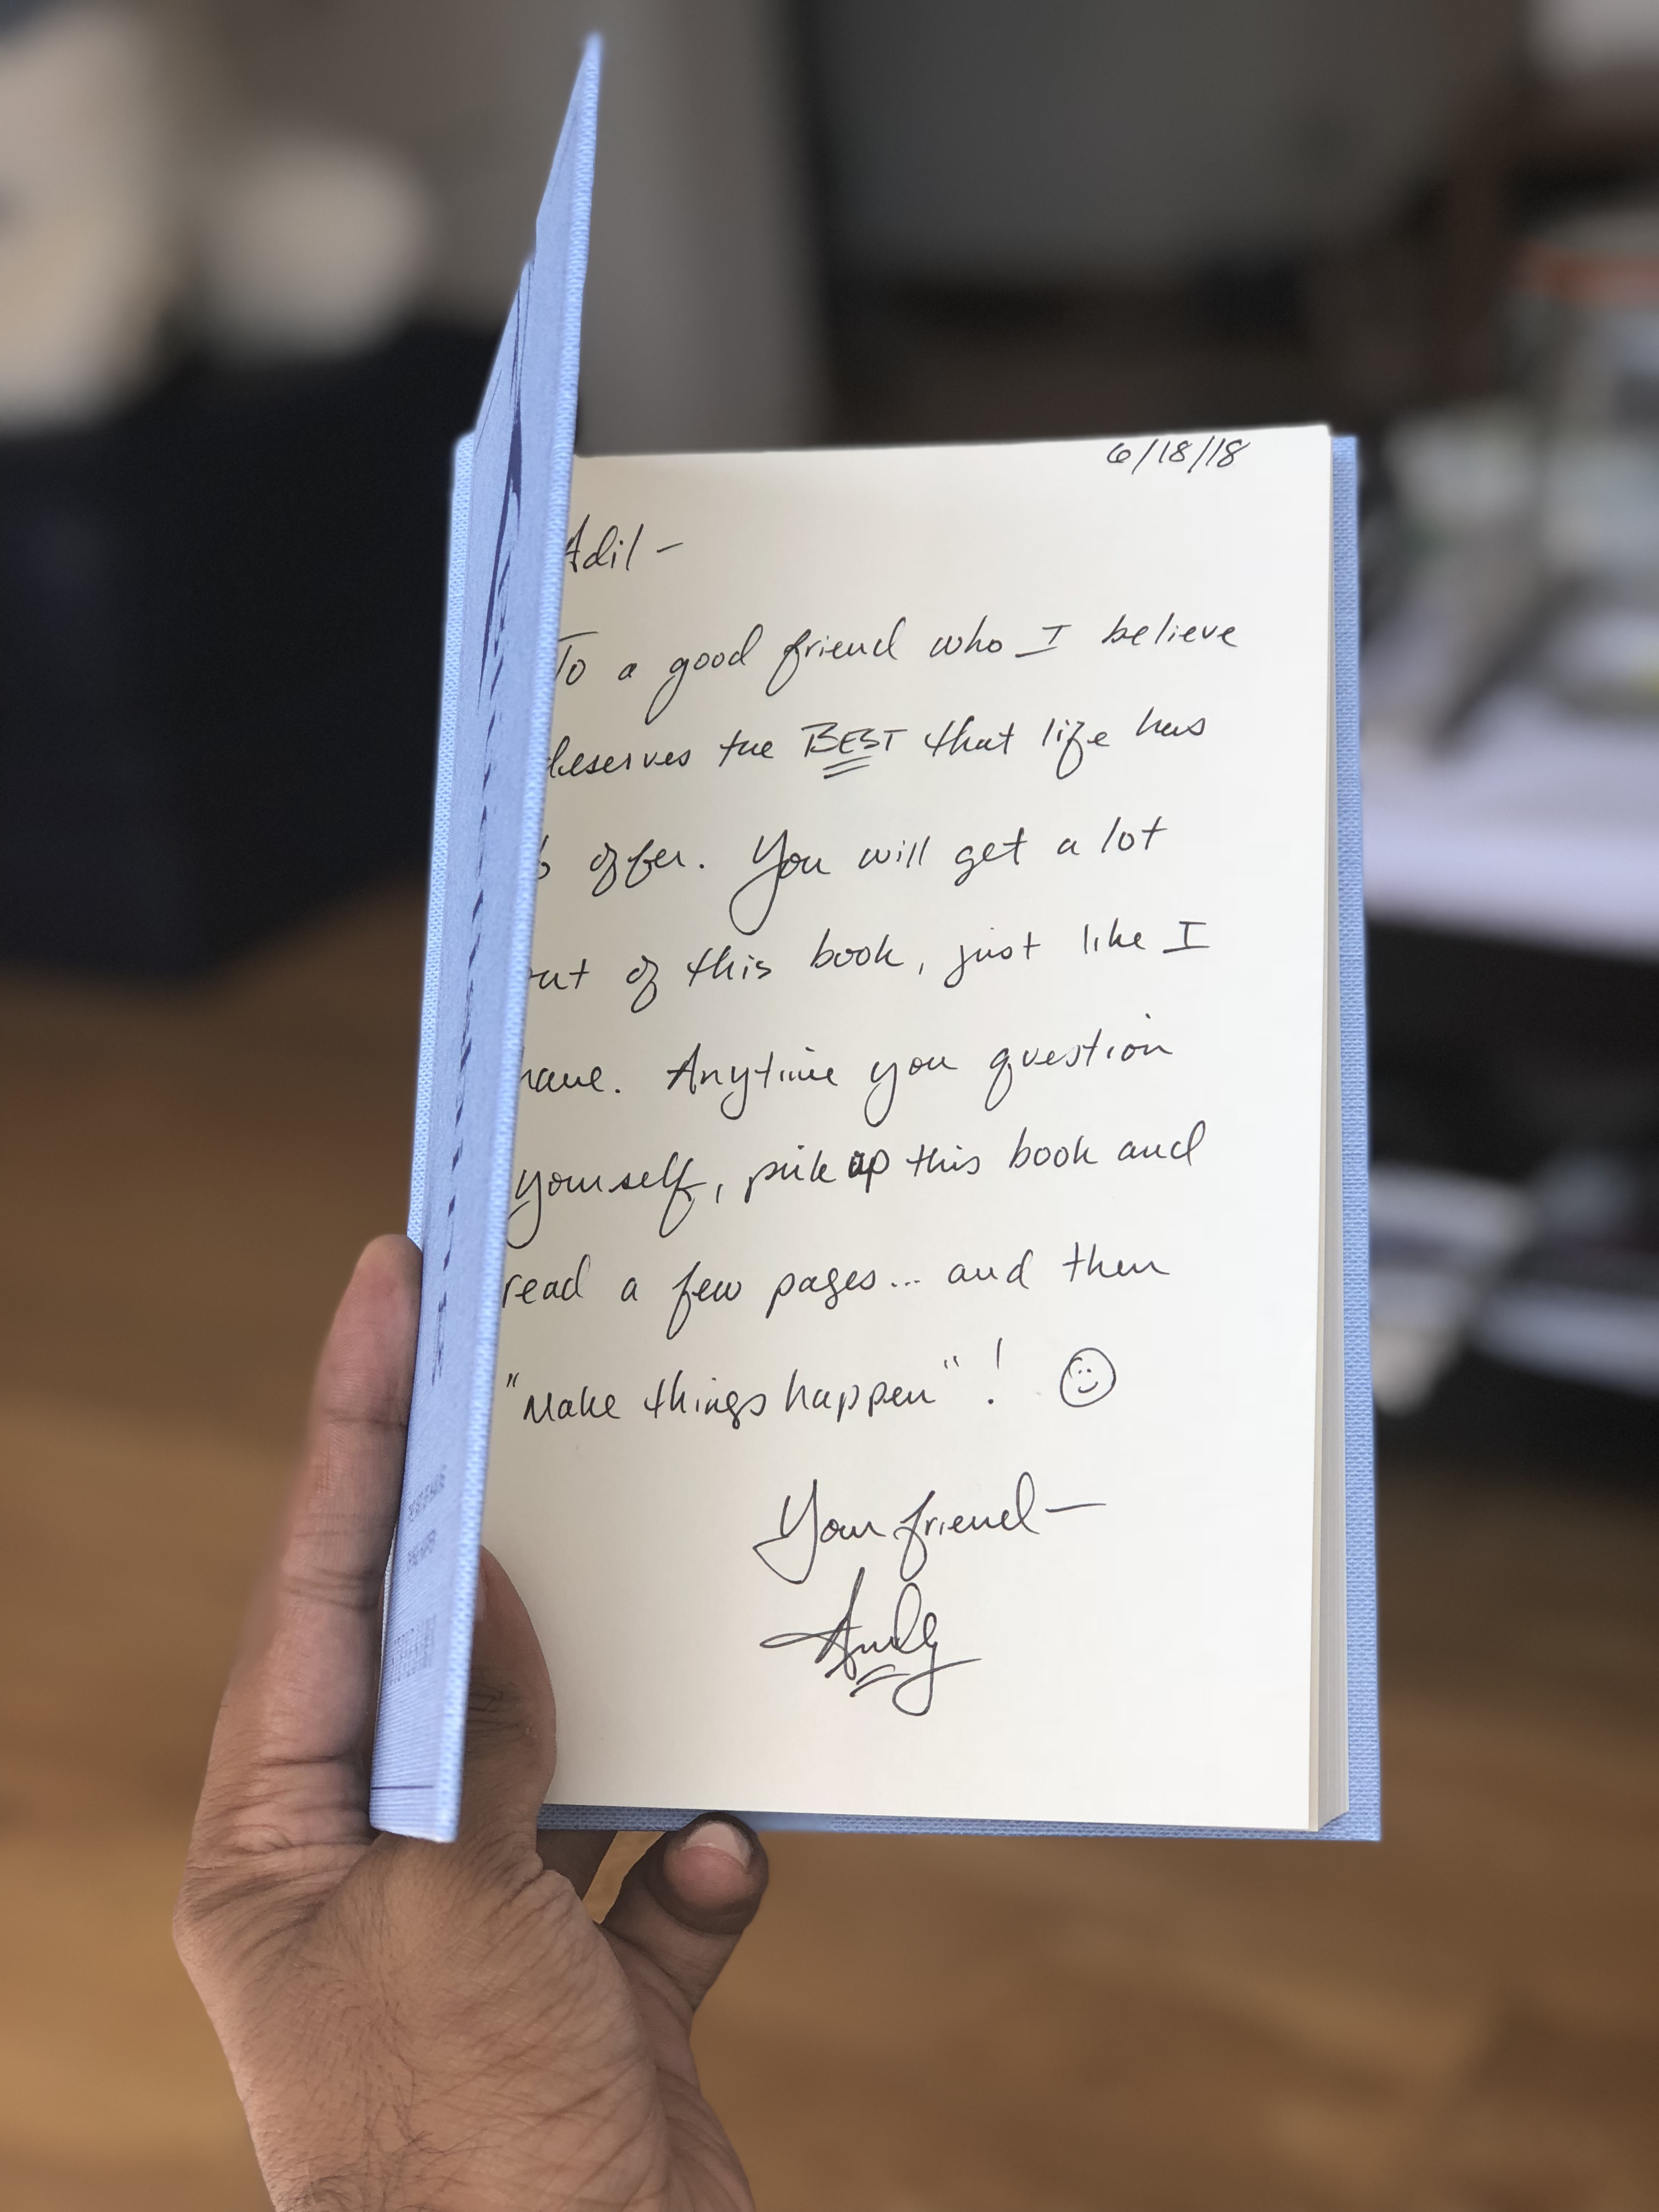 6/18/18
Adil -
To a good friend who I believe
deserves the BEST that life has
to offer. You will get a lot
out of this book, just like I
have. Anytime you question
yourself, pick up this book and
read a few pages... and then
"Make things happen"!
Your friend -
Andy